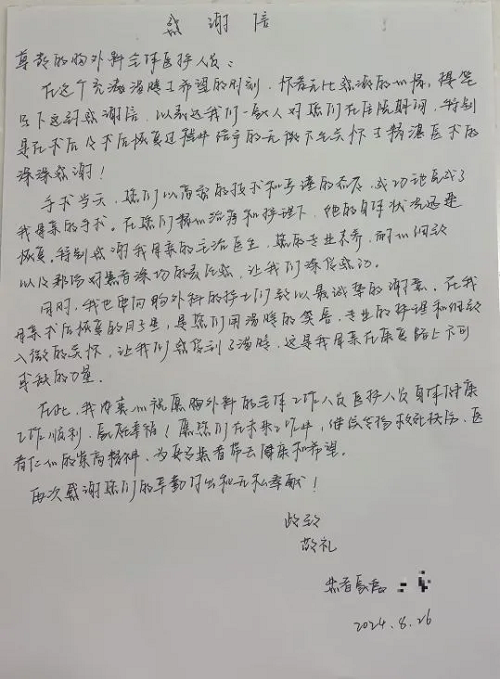 感谢信
尊敬的胸外科全体医护人员：
在这个充满温暖与希望的时刻，怀着无比感激的心情，提笔
写下这封感谢信，以表达我们一家人对您们在住院期间，特别
是在术后及术后恢复过程中给予的无微不至关怀与精湛医术的
深深感谢！
手术当天，您们以高超的技术和专业的态度，成功地完成了
我母亲的手术。在您们精心治疗和护理下，她的身体状况迅速
恢复。特别感谢我母亲的主治医生，您的专业素养，耐心细致
以及那份对患者深切的责任感，让我们深受感动。
同时，我也要向胸外科的护士们致以最诚挚的谢意，在我
母亲术后恢复的日子里，是您们用温暖的笑容，专业的护理和细致
入微的关怀，让我们感受到了温暖，这是我母亲在康复路上不可
或缺的力量。
在此，我衷心祝愿胸外科的全体工作人员医护人员身体健康
工作顺利，家庭幸福！愿您们在未来工作中，继续发扬救死扶伤、医
者仁心的崇高精神，为更多患者带去健康和希望。
再次感谢您们的辛勤付出和无私奉献！
此致
敬礼
患者家属
2024.8.26